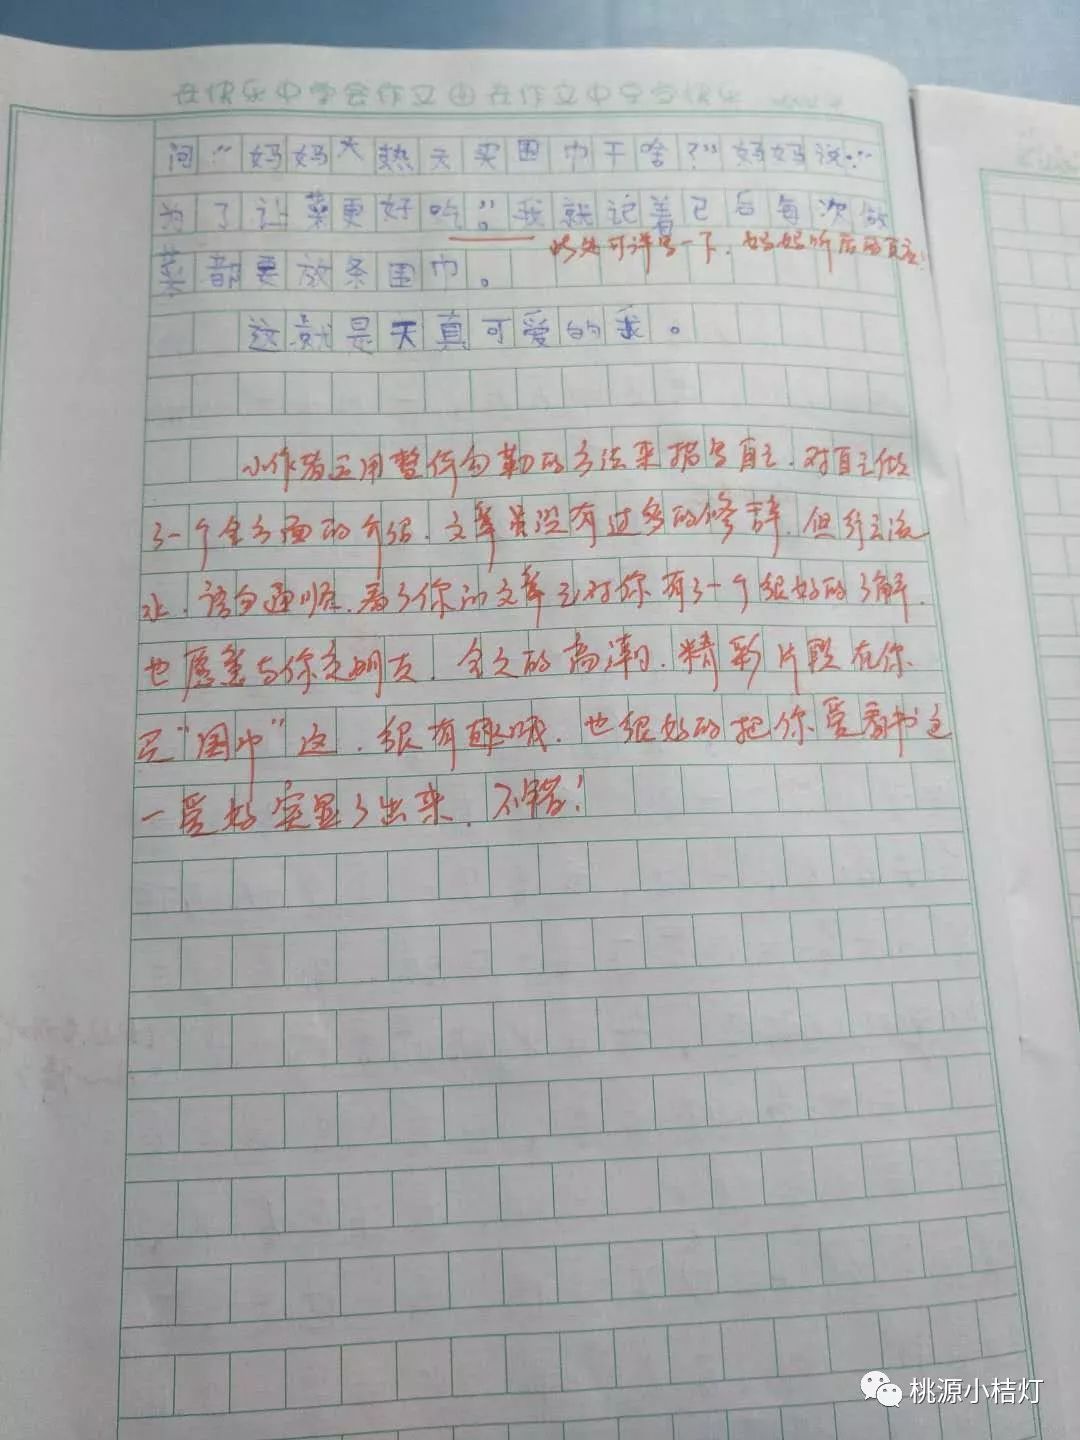 在快乐中学会作文 在作文中享受快乐
问:“妈妈大热天买围巾干啥?”妈妈说:“
为了让菜更好吃”。我就记着已后每次做
此处可详写一下,妈妈听后的反应!
菜都要放条围巾。
这就是天真可爱的我。
小作者运用整体勾勒的方法来描写自己,对自己做
了一个全方面的介绍,文章虽没有过多的修辞,但行云流
水,语句通顺,看了你的文章已对你有了一个很好的了解,
也愿意与你交朋友,全文的高潮,精彩片段在你
买“围巾”这,很有趣哦,也很好的把你爱看书这
一爱好突显了出来,不错!
桃源小桔灯